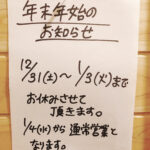 年末年始の
お知らせ
12/31(土)～1/3(火)まで
お休みさせて
頂きます。
1/4(水)から通常営業と
なります。